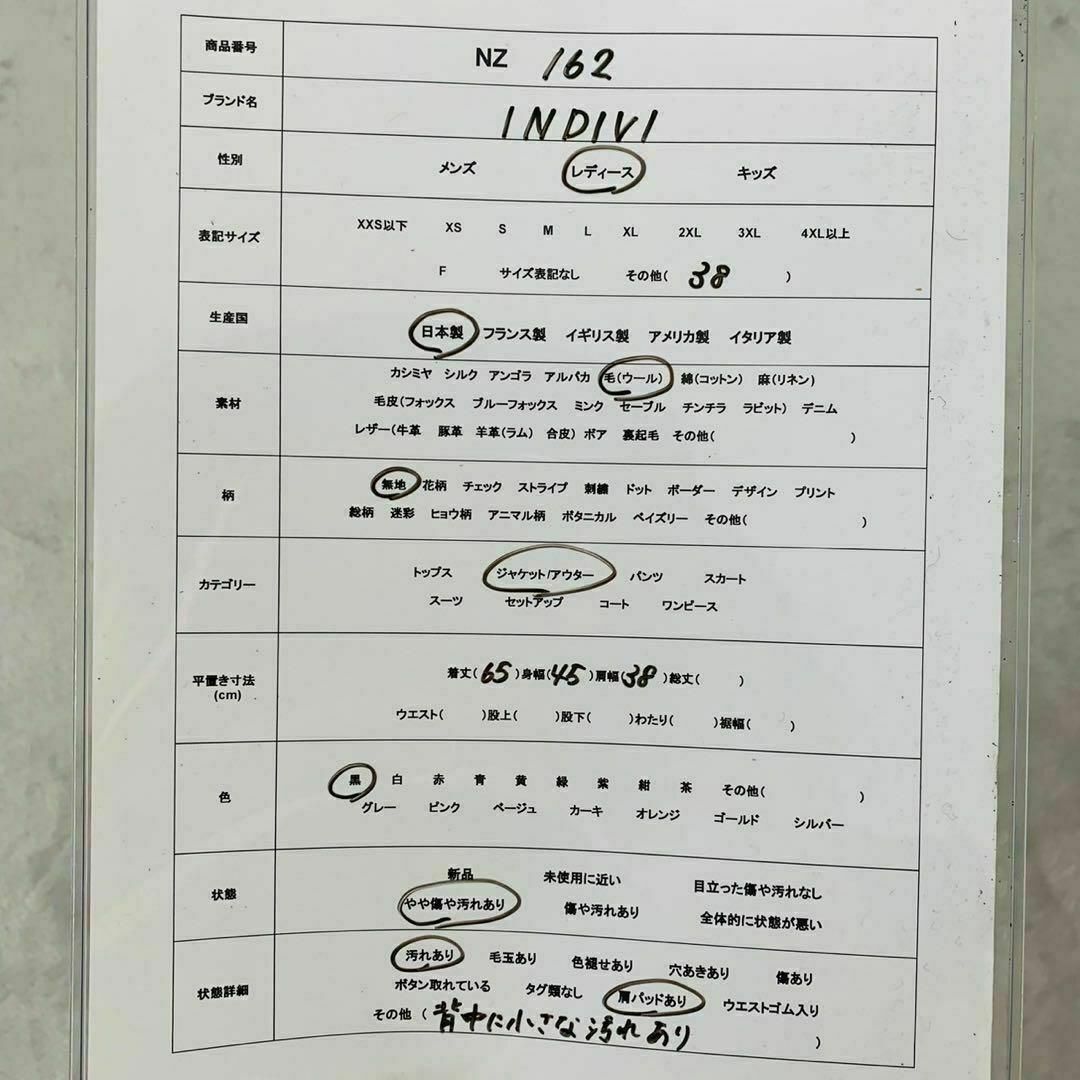 商品番号 NZ 162
ブランド名 INDIVI
性別 メンズ レディース キッズ
表記サイズ XXS以下 XS S M L XL 2XL 3XL 4XL以上
F サイズ表記なし その他( 38 )
生産国 日本製 フランス製 イギリス製 アメリカ製 イタリア製
素材 カシミヤ シルク アンゴラ アルパカ 毛(ウール) 綿(コットン) 麻(リネン)
毛皮(フォックス ブルーフォックス ミンク セーブル チンチラ ラビット) デニム
レザー(牛革 豚革 羊革(ラム) 合皮) ボア 裏起毛 その他( )
柄 無地 花柄 チェック ストライプ 刺繍 ドット ボーダー デザイン プリント
総柄 迷彩 ヒョウ柄 アニマル柄 ボタニカル ペイズリー その他( )
カテゴリー トップス ジャケット/アウター パンツ スカート
スーツ セットアップ コート ワンピース
平置き寸法 (cm) 着丈( 65 )身幅( 45 )肩幅( 38 )総丈( )
ウエスト( )股上( )股下( )わたり( )裾幅( )
色 黒 白 赤 青 黄 緑 紫 紺 茶 その他( )
グレー ピンク ベージュ カーキ オレンジ ゴールド シルバー
状態 新品 未使用に近い 目立った傷や汚れなし
やや傷や汚れあり 傷や汚れあり 全体的に状態が悪い
状態詳細 汚れあり 毛玉あり 色褪せあり 穴あきあり 傷あり
ボタン取れている タグ類なし 肩パッドあり ウエストゴム入り
その他 ( 背中に小さな汚れあり )